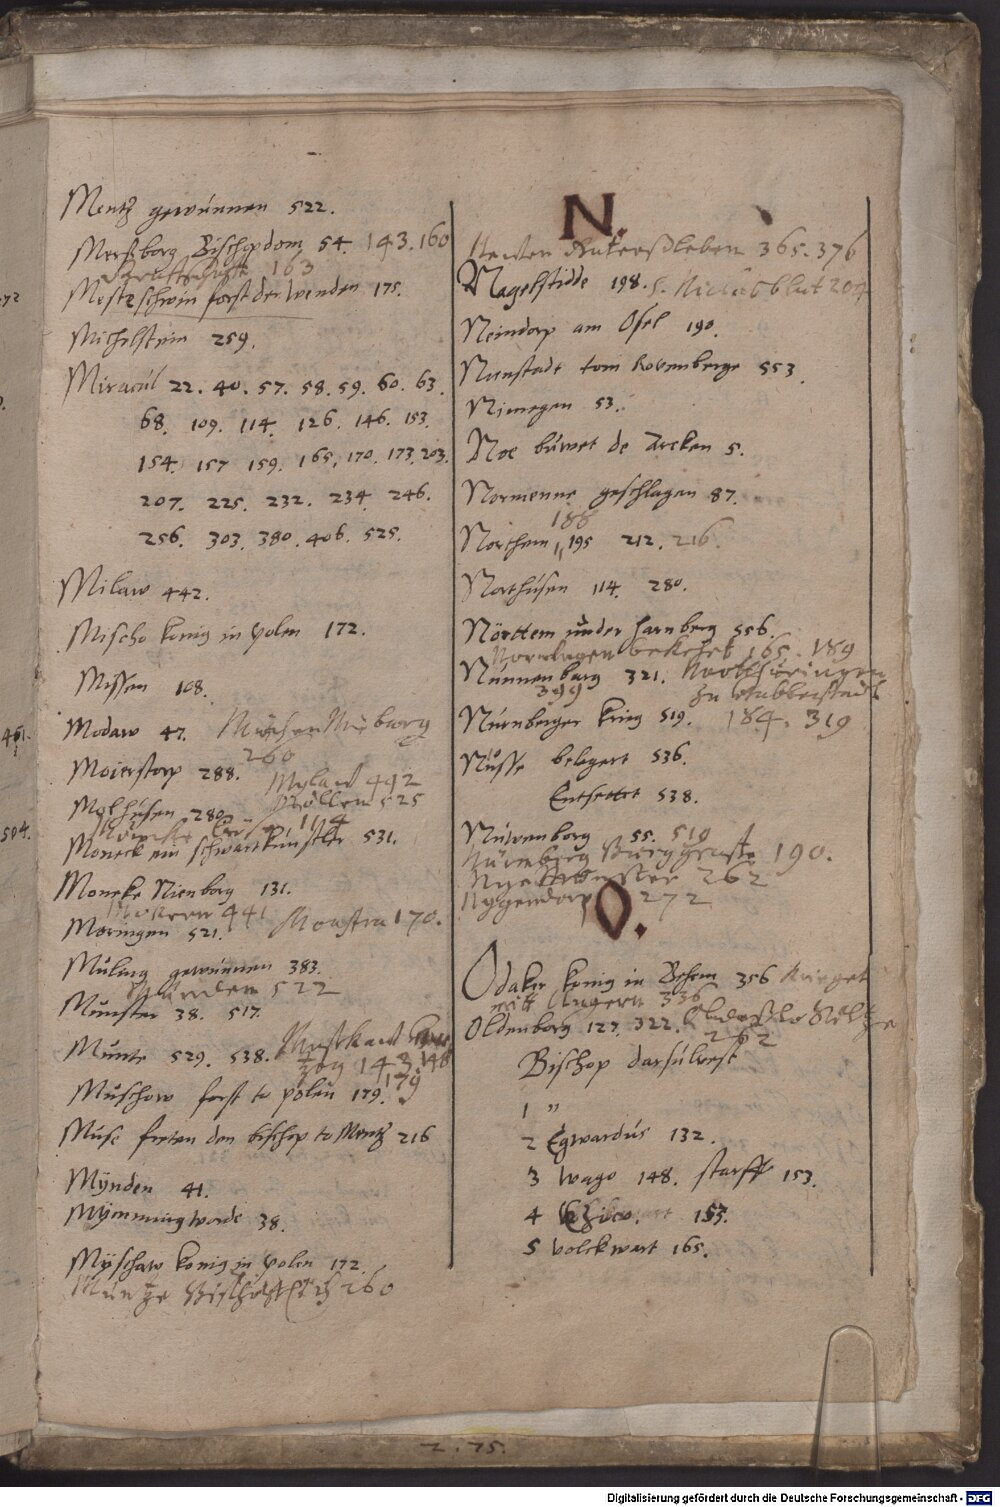 Mentz gewunnen 522.
Merßborg Bischopdom 54. 143. 160
163
forst der Wenden 175.
Michelstein 259.
Miracul 22. 40. 57. 58. 59. 60. 63.
68. 109. 114. 126. 146. 153.
154. 157 159. 165. 170. 173. 203.
207. 225. 232. 234. 246.
256. 303. 380. 406. 525.
Milaw 442.
Mischo konig in polen 172.
Missen 108.
Modaw 47.
260
Moierstorp 288.
Myland 442
Möllen 525
Molhusen 280
114
Moneck ein schwartkunstler 531.
Moneke Nienborg 131.
Mokern 441
Moringen 521.
Monstra 170.
Muling gewunnen 383.
Münden 522
Munster 38. 517.
Munte 529. 538.
143. 148
179
Muschow forst to polen 179.
Muse freten den bischop to Mentz 216
Mynden 41.
Mymmingworde 38.
Myschaw konig in polen 172.
Muntze 260
N.
365. 376
Nagelstidde 198.
Neindorp am Osel 190.
Nienstadt tom Rovenberge 553.
Nimegen 53.
Noe buwet de Arcken 5.
Normenne geschlagen 87.
188
Northem 195 212. 216.
Northusen 114. 280.
Nörttem under Harnberg 556.
Norwegen bekeret 165. 189
Nunnenburg 321.
399
zu Halberstadt
Nurnberger krieg 519. 184. 319
Nusse belegert 536.
Entsettet 538.
Nuwenborg 55. 510
Nürmberg Burggrafe 190.
262
Nyendorp 272
O.
Odaker konig in Behem 356 krieget
mitt Ungern 336
Oldenborg 127. 322.
262
Bischop darsulvest
1 "
2 Egwardus 132.
3 Wago 148. starff 153.
4 153.
5 volckwart 165.
2. 75.
Digitalisierung gefördert durch die Deutsche Forschungsgemeinschaft - DFG